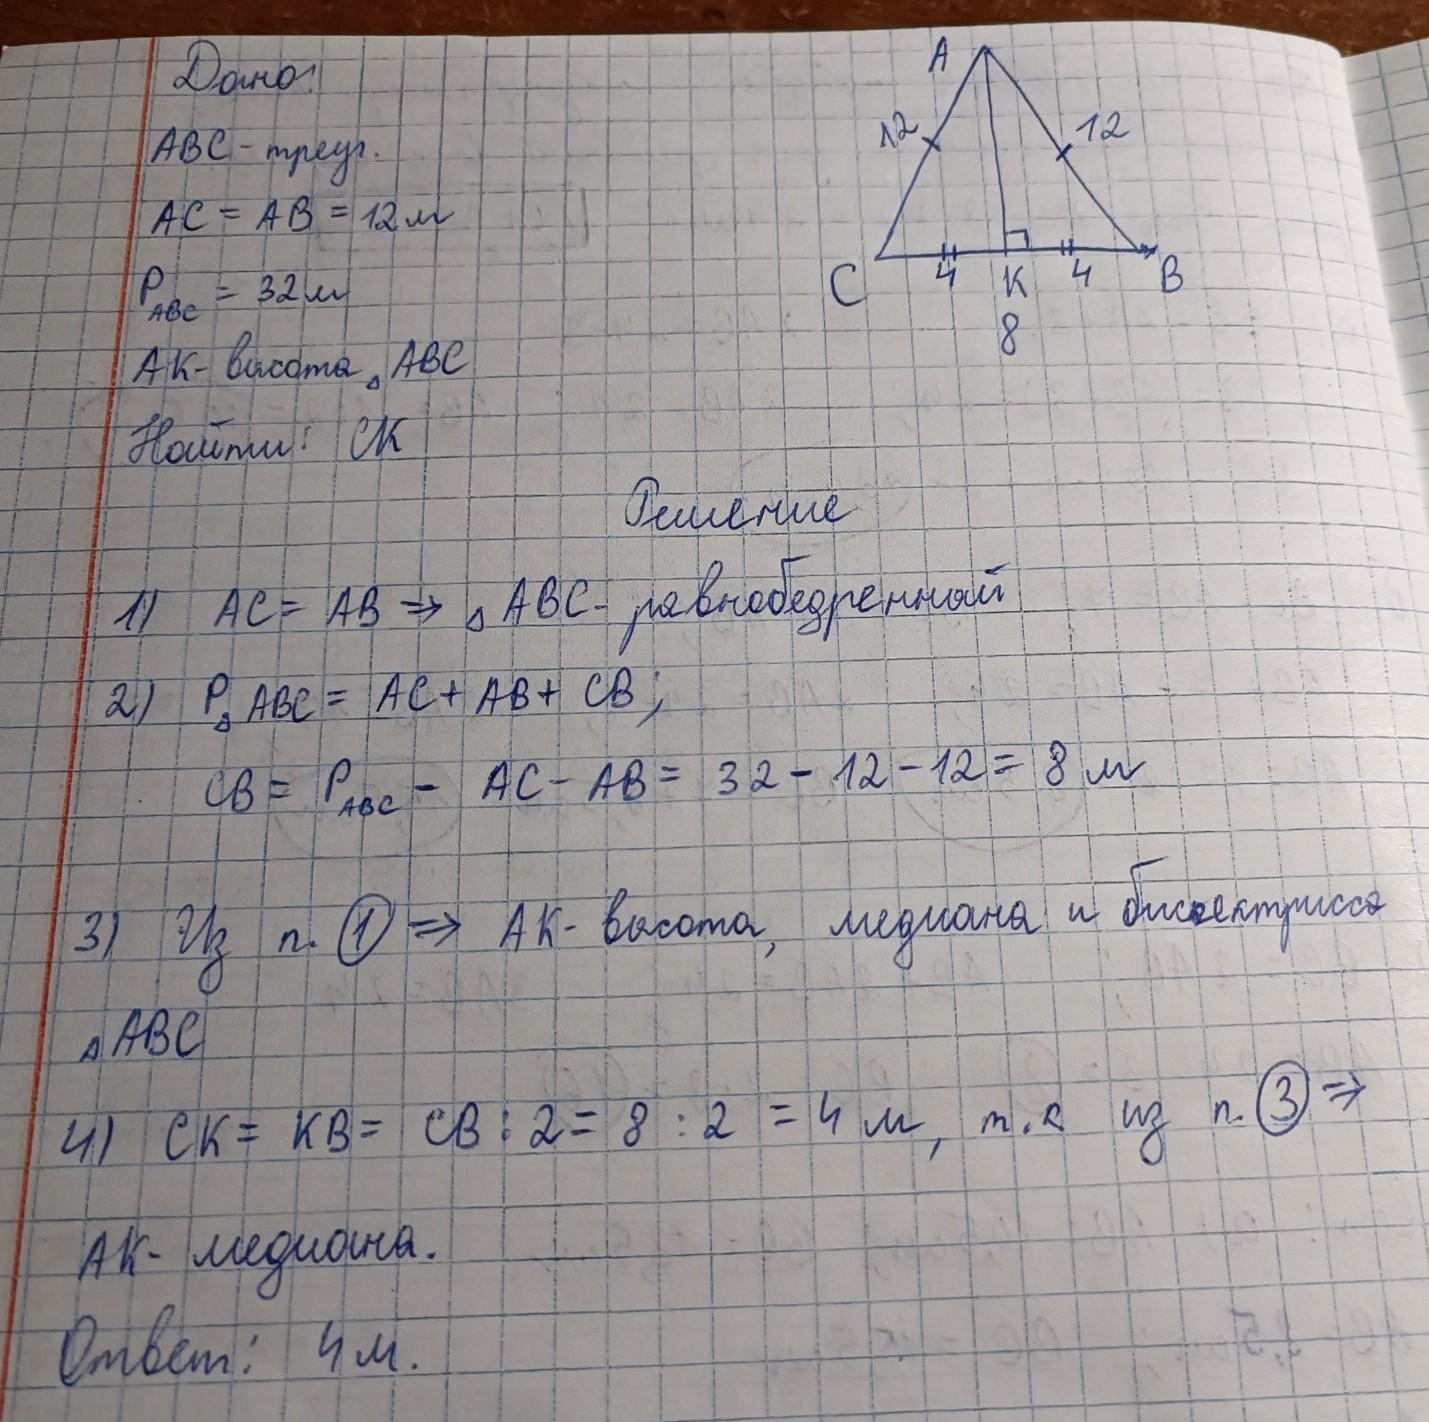 Дано:
ABC - треуг.
AC = AB = 12 м
P ABC = 32 м
AK - высота △ABC
Найти: CK
A
12
12
C
4
K
4
B
8
Решение
1) AC = AB ⇒ △ABC - равнобедренный
2) P△ABC = AC + AB + CB;
CB = P ABC - AC - AB = 32 - 12 - 12 = 8 м
3) Из п. ① ⇒ AK - высота, медиана и биссектрисса
△ABC
4) CK = KB = CB : 2 = 8 : 2 = 4 м, т.к из п. ③ ⇒
AK - медиана.
Ответ: 4 м.